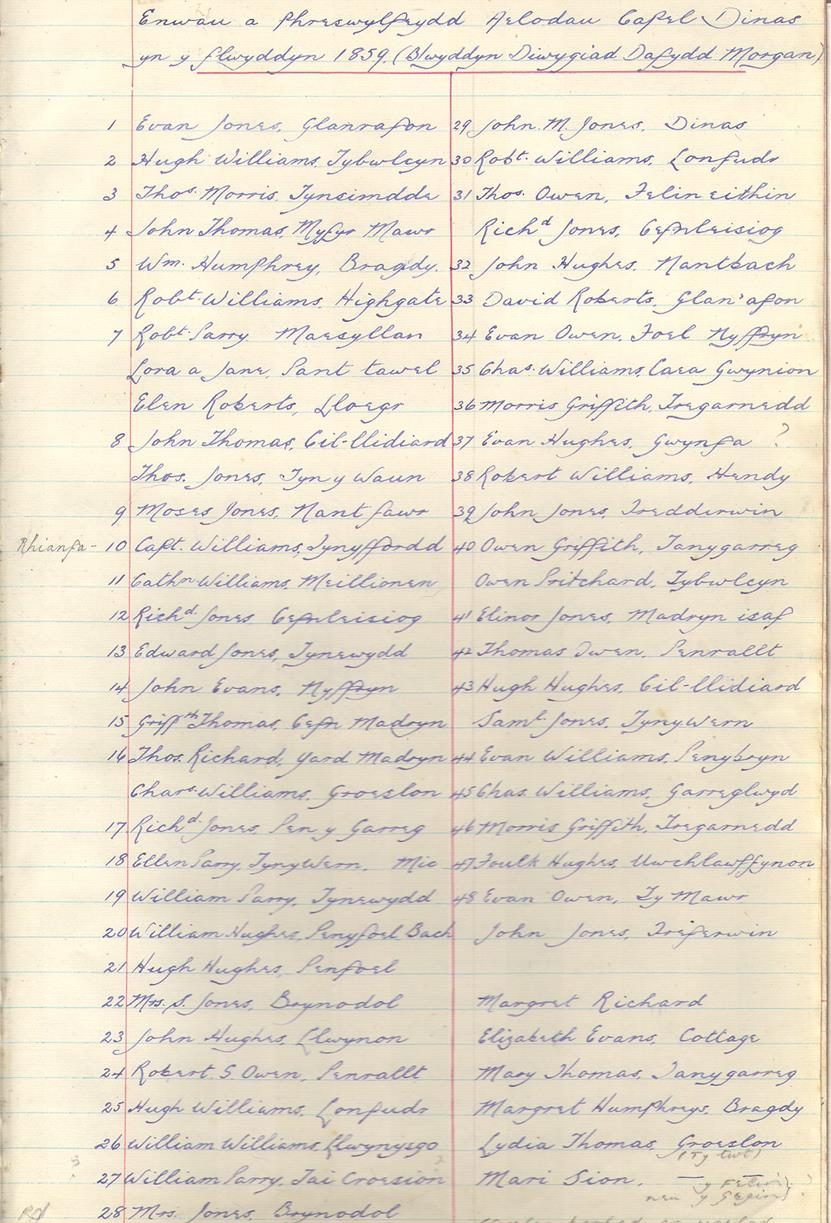 Enwau a Phreswylfeydd Aelodau Capel Dinas
yn y flwyddyn 1859 (Blwyddyn Diwygiad Dafydd Morgan)
1 Evan Jones, Glanrafon
2 Hugh Williams, Tybwlcyn
3 Thos. Morris, Tynsimdde
4 John Thomas, Myfyr Mawr
5 Wm. Humphrey, Bragdy.
6 Robt. Williams, Highgate
7 Robt. Parry Maesyllan
Lora a Jane, Pant tawel
Elen Roberts, Lloegr
8 John Thomas, Cil-llidiard
Thos. Jones, Tyn y Waun
9 Moses Jones, Nant fawr
Rhianfa - 10 Capt. Williams, Tynyffordd
11 Cathn Williams, Meillionen
12 Richd Jones, Cefnleisiog
13 Edward Jones, Tynewydd
14 John Evans, Nyffryn
15 Griffth Thomas, Cefn Madryn
16 Thos. Richard, Yard Madryn
Chars. Williams, Groeslon
17 Richd. Jones, Pen y Garreg
18 Ellen Parry, TynyWern, Mic
19 William Parry, Tynewydd
20 William Hughes, Penyfoel Bach
21 Hugh Hughes, Penfoel
22 Mrs. S. Jones, Brynodol
23 John Hughes, Llwynon
24 Robert S. Owen, Penrallt
25 Hugh Williams, Lonfudr
26 William Williams, Llwynysgo
27 William Parry, Tai Croesion
28 Mrs. Jones, Brynodol
29 John. M. Jones, Dinas
30 Robt. Williams, Lonfudr
31 Thos. Owen, Felin eithin
Richd Jones, Cefnleisiog
32 John Hughes, Nantbach
33 David Roberts, Glan'afon
34 Evan Owen, Foel Nyffryn
35 Chas. Williams, Caea Gwynion
36 Morris Griffith, Tregarnedd
37 Evan Hughes, Gwynfa ?
38 Robert Williams, Hendy
39 John Jones, Tredderwin
40 Owen Griffith, Tanygarreg
Owen Pritchard, Tybwlcyn
41 Elinor Jones, Madryn isaf
42 Thomas Owen, Penrallt
43 Hugh Hughes, Cil-llidiard
Saml. Jones, TynyWern
44 Evan Williams, Penybryn
45 Chas. Williams, Garreglwyd
46 Morris Griffith, Tregarnedd
47 Foulk Hughes, Uwchlawffynon
48 Evan Owen, Ty Mawr
John Jones, Treferwin
Margret Richard
Elizabeth Evans, Cottage
Mary Thomas, Tanygarreg
Margret Humphreys, Bragdy
Lydia Thomas, Groeslon
(Ty twt)
Mari Sion,
neu y Gegin)